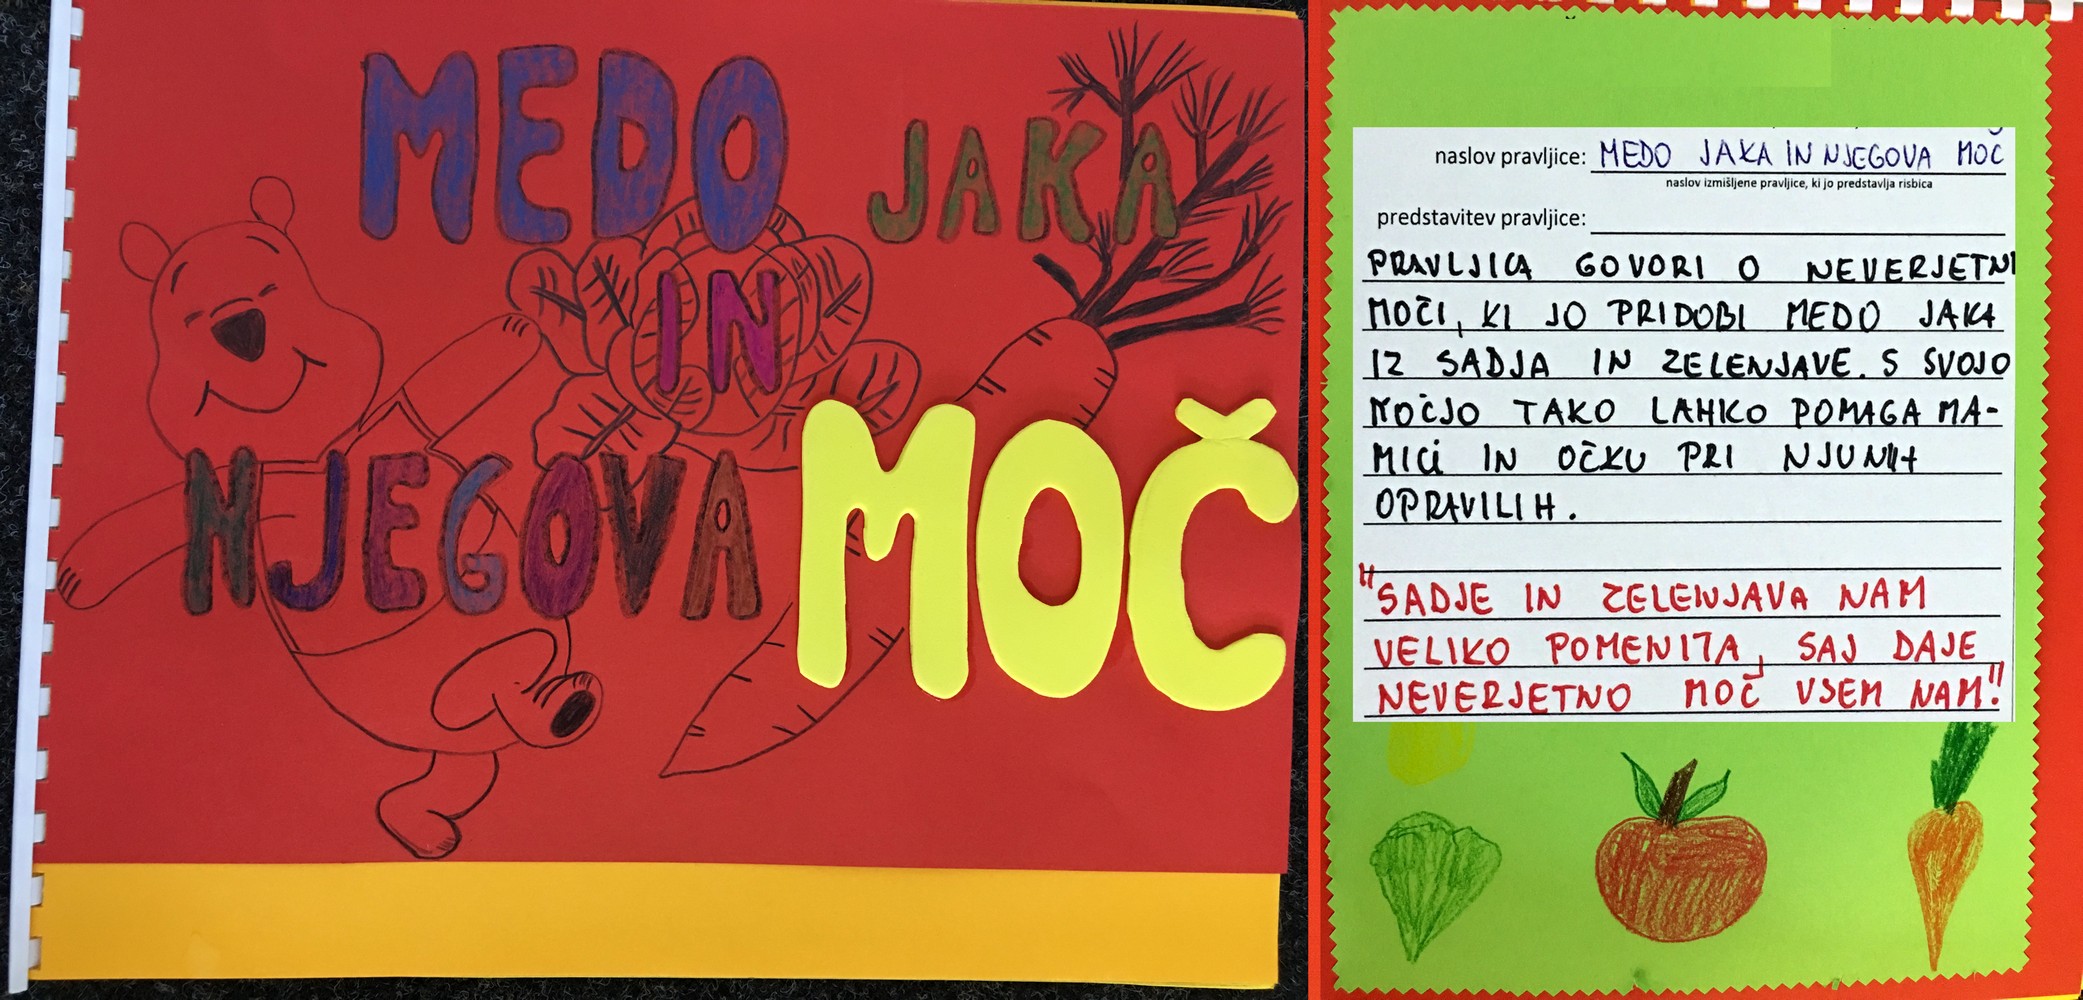 MEDO JAKA
IN
NJEGOVA MOČ
naslov pravljice: MEDO JAKA IN NJEGOVA MOČ
naslov izmišljene pravljice, ki jo predstavlja risbica
predstavitev pravljice:
PRAVLJICA GOVORI O NEVERJETNI
MOČI, KI JO PRIDOBI MEDO JAKA
IZ SADJA IN ZELENJAVE. S SVOJO
MOČJO TAKO LAHKO POMAGA MA-
MICI IN OČKU PRI NJUNIH
OPRAVILIH.
"SADJE IN ZELENJAVA NAM
VELIKO POMENITA, SAJ DAJE
NEVERJETNO MOČ VSEM NAM!"